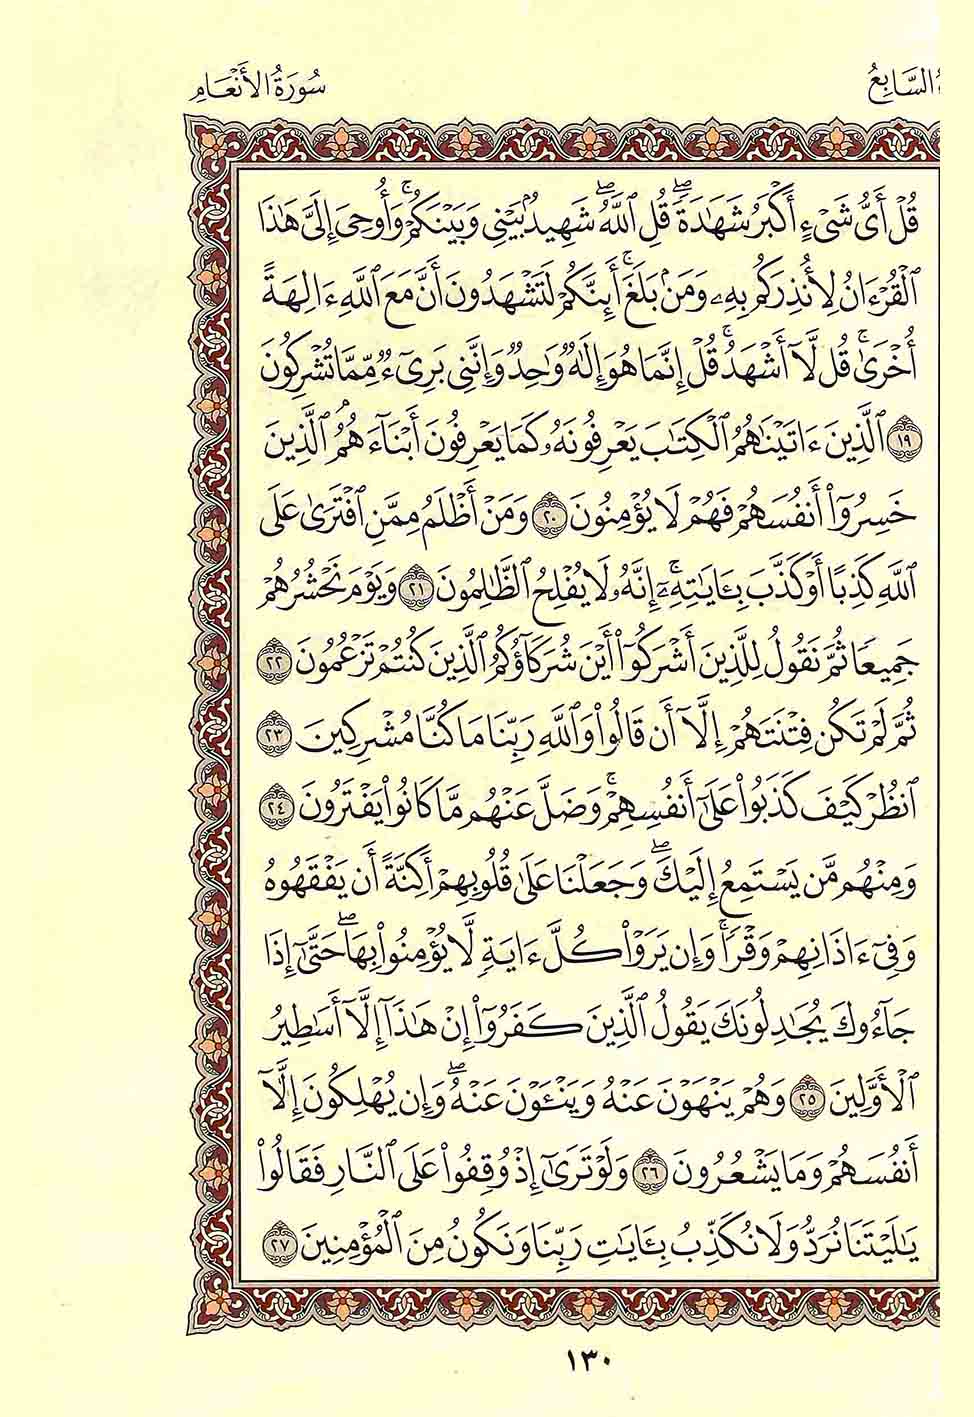 سُورَةُ الأَنْعَامِ
السَّابِعُ
قُلْ أَىُّ شَىْءٍ أَكْبَرُ شَهَٰدَةً ۖ قُلِ ٱللَّهُ ۖ شَهِيدٌۢ بَيْنِى وَبَيْنَكُمْ ۚ وَأُوحِىَ إِلَىَّ هَٰذَا
ٱلْقُرْءَانُ لِأُنذِرَكُم بِهِۦ وَمَنۢ بَلَغَ ۚ أَئِنَّكُمْ لَتَشْهَدُونَ أَنَّ مَعَ ٱللَّهِ ءَالِهَةً
أُخْرَىٰ ۚ قُل لَّآ أَشْهَدُ ۚ قُلْ إِنَّمَا هُوَ إِلَٰهٌ وَٰحِدٌ وَإِنَّنِى بَرِىٓءٌ مِّمَّا تُشْرِكُونَ
١٩ ٱلَّذِينَ ءَاتَيْنَٰهُمُ ٱلْكِتَٰبَ يَعْرِفُونَهُۥ كَمَا يَعْرِفُونَ أَبْنَآءَهُمُ ۘ ٱلَّذِينَ
خَسِرُوٓا۟ أَنفُسَهُمْ فَهُمْ لَا يُؤْمِنُونَ ٢٠ وَمَنْ أَظْلَمُ مِمَّنِ ٱفْتَرَىٰ عَلَى
ٱللَّهِ كَذِبًا أَوْ كَذَّبَ بِـَٔايَٰتِهِۦٓ ۗ إِنَّهُۥ لَا يُفْلِحُ ٱلظَّٰلِمُونَ ٢١ وَيَوْمَ نَحْشُرُهُمْ
جَمِيعًا ثُمَّ نَقُولُ لِلَّذِينَ أَشْرَكُوٓا۟ أَيْنَ شُرَكَآؤُكُمُ ٱلَّذِينَ كُنتُمْ تَزْعُمُونَ ٢٢
ثُمَّ لَمْ تَكُن فِتْنَتَهُمْ إِلَّآ أَن قَالُوا۟ وَٱللَّهِ رَبِّنَا مَا كُنَّا مُشْرِكِينَ ٢٣
ٱنظُرْ كَيْفَ كَذَبُوا۟ عَلَىٰٓ أَنفُسِهِمْ ۚ وَضَلَّ عَنْهُم مَّا كَانُوا۟ يَفْتَرُونَ ٢٤
وَمِنْهُم مَّن يَسْتَمِعُ إِلَيْكَ ۖ وَجَعَلْنَا عَلَىٰ قُلُوبِهِمْ أَكِنَّةً أَن يَفْقَهُوهُ
وَفِىٓ ءَاذَانِهِمْ وَقْرًا ۚ وَإِن يَرَوْا۟ كُلَّ ءَايَةٍ لَّا يُؤْمِنُوا۟ بِهَا ۖ حَتَّىٰٓ إِذَا
جَآءُوكَ يُجَٰدِلُونَكَ يَقُولُ ٱلَّذِينَ كَفَرُوٓا۟ إِنْ هَٰذَآ إِلَّآ أَسَٰطِيرُ
ٱلْأَوَّلِينَ ٢٥ وَهُمْ يَنْهَوْنَ عَنْهُ وَيَنْـَٔوْنَ عَنْهُ ۖ وَإِن يُهْلِكُونَ إِلَّآ
أَنفُسَهُمْ وَمَا يَشْعُرُونَ ٢٦ وَلَوْ تَرَىٰٓ إِذْ وُقِفُوا۟ عَلَى ٱلنَّارِ فَقَالُوا۟
يَٰلَيْتَنَا نُرَدُّ وَلَا نُكَذِّبُ بِـَٔايَٰتِ رَبِّنَا وَنَكُونُ مِنَ ٱلْمُؤْمِنِينَ ٢٧
١٣٠